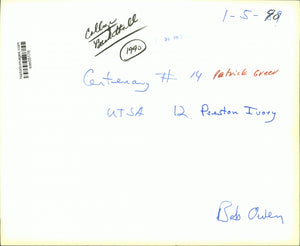 1-5-90
College
Basketball
1990
Centenary # 14 Patrick Greer
UTSA 12 Preston Ivory
Bob Owen